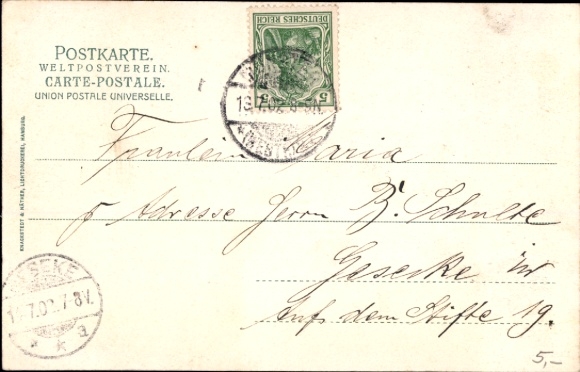 POSTKARTE.
WELTPOSTVEREIN.
CARTE-POSTALE.
UNION POSTALE UNIVERSELLE.
DEUTSCHES REICH
5
5
13.7.02.
(WESTF.)
KNACKSTEDT & NÄTHER, LICHTDRUCKEREI, HAMBURG.
Fräulein Maria
p Adresse Herrn B. Schulte
Gesecke i/W
Auf dem Stifte 19.
GESEKE
7-8V.
* k a
5,-